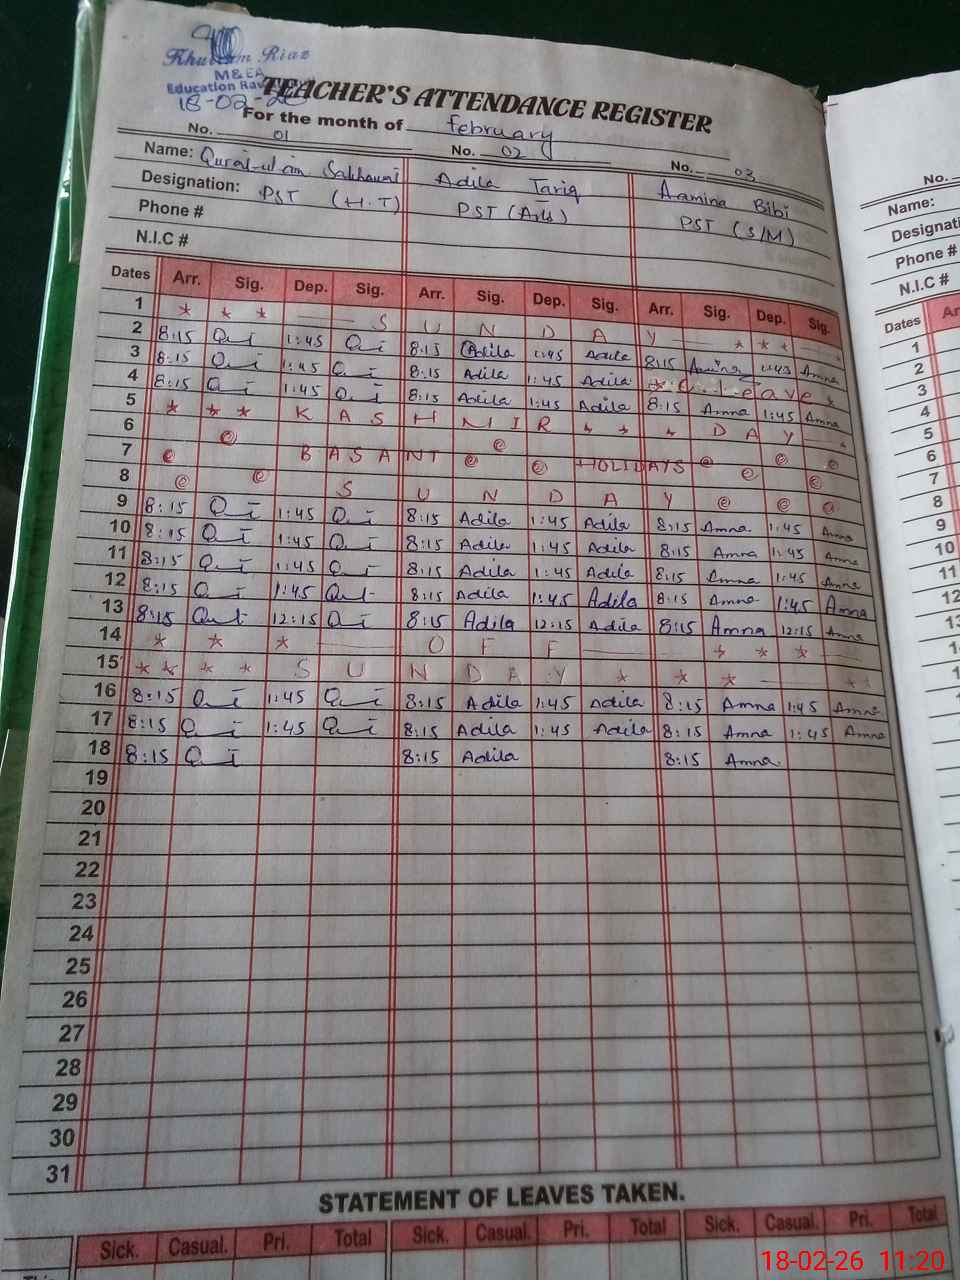 Riaz
M&EA
Education
18-02-26
TEACHER'S ATTENDANCE REGISTER
For the month of February
No. 01 No. 02 No. 03
Name: Qurat-ul-ain Sakhawat Adila Tariq Aamina Bibi
Designation: PST (H.T) PST (Arts) PST (S/M)
Phone #
N.I.C #
Dates Arr. Sig. Dep. Sig. Arr. Sig. Dep. Sig. Arr. Sig. Dep. Sig.
1 * * * S U N D A Y * * *
2 8:15 1:45 8:15 Adila 1:45 Adila 8:15 Amina 1:45 Amna
3 8:15 1:45 8:15 Adila 1:45 Adila * Leave *
4 8:15 1:45 8:15 Adila 1:45 Adila 8:15 Amna 1:45 Amna
5 * * * K A S H M I R * * * D A Y *
6
7 B A S A N T HOLIDAYS
8 S U N D A Y
9 8:15 1:45 8:15 Adila 1:45 Adila 8:15 Amna 1:45 Amna
10 8:15 1:45 8:15 Adila 1:45 Adila 8:15 Amna 1:45 Amna
11 8:15 1:45 8:15 Adila 1:45 Adila 8:15 Amna 1:45 Amna
12 8:15 1:45 8:15 Adila 1:45 Adila 8:15 Amna 1:45 Amna
13 8:15 12:15 8:15 Adila 12:15 Adila 8:15 Amna 12:15 Amna
14 * * * O F F * * *
15 * * * * S U N D A Y * * * * *
16 8:15 1:45 8:15 Adila 1:45 Adila 8:15 Amna 1:45 Amna
17 8:15 1:45 8:15 Adila 1:45 Adila 8:15 Amna 1:45 Amna
18 8:15 8:15 Adila 8:15 Amna
19
20
21
22
23
24
25
26
27
28
29
30
31
STATEMENT OF LEAVES TAKEN.
Sick. Casual. Pri. Total Sick. Casual. Pri. Total Sick. Casual. Pri. Total
No.
Name:
Phone #
N.I.C #
Dates
1
2
3
4
5
6
7
8
9
10
11
12
18-02-26 11:20